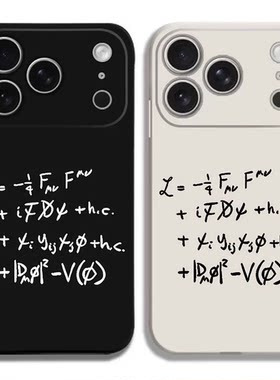 = -¼ Fμν F^μν
+ i ψ̄ D̸ ψ + h.c.
+ ψi yij ψj ϕ + h.c.
+ |Dμ ϕ|² - V(ϕ)
ℒ = -¼ Fμν F^μν
+ i ψ̄ D̸ ψ + h.c.
+ ψi yij ψj ϕ + h.c.
+ |Dμ ϕ|² - V(ϕ)